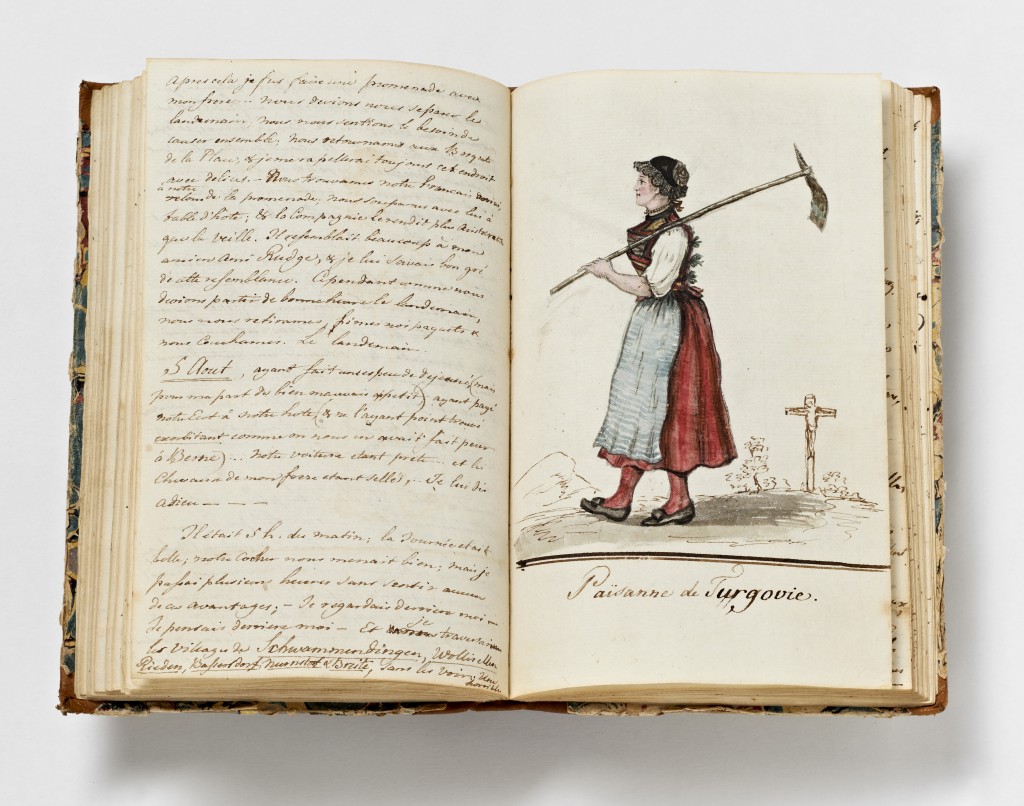 après cela je fus faire une promenade avec
mon frere... nous devions nous separer le
landemain, nous nous sentions le besoin de
causer ensemble; nous retournames aux
de la Place, & je me rapellerai toujours cet endroit
avec delices. – Nous trouvames notre Francais
à notre
retour de la promenade, nous soupames avec lui à
table d'hote; & la Compagnie le rendit plus
que la veille. Il resemblait beaucoup à mon
ancien ami Rudge, & je lui savais bon gré
de cette resemblance. Cependant comme nous
devions partir de bonne heure le landemain,
nous nous retirames, fimes nos paquets &
nous couchames. Le landemain.
5 Aout, ayant fait un espece de dejeuné (mais
pour ma part de bien mauvais appetit) ayant payé
notre Ecot à notre hote (& ne l'ayant point trouvé
exorbitant comme on nous en avait fait peur
à Berne)... notre voiture etant prete – et les
Chevaux de mon frere etant sellés, – Je lui dis
adieu — — —
Il était 5 h. du matin; la Journée etait
belle; notre Cocher nous menait bien; mais je
passai plusieurs heures sans sentir aucun
de ces avantages; – Je regardais derriere moi –
Je pensais derriere moi – Et je traversai
les villages de Schwammendingen, Wollisellen
Rieden, Bassersdorf, Nurnstorf & Brüte, sans les voir; Une
horrible
Païsanne de Turgovie.